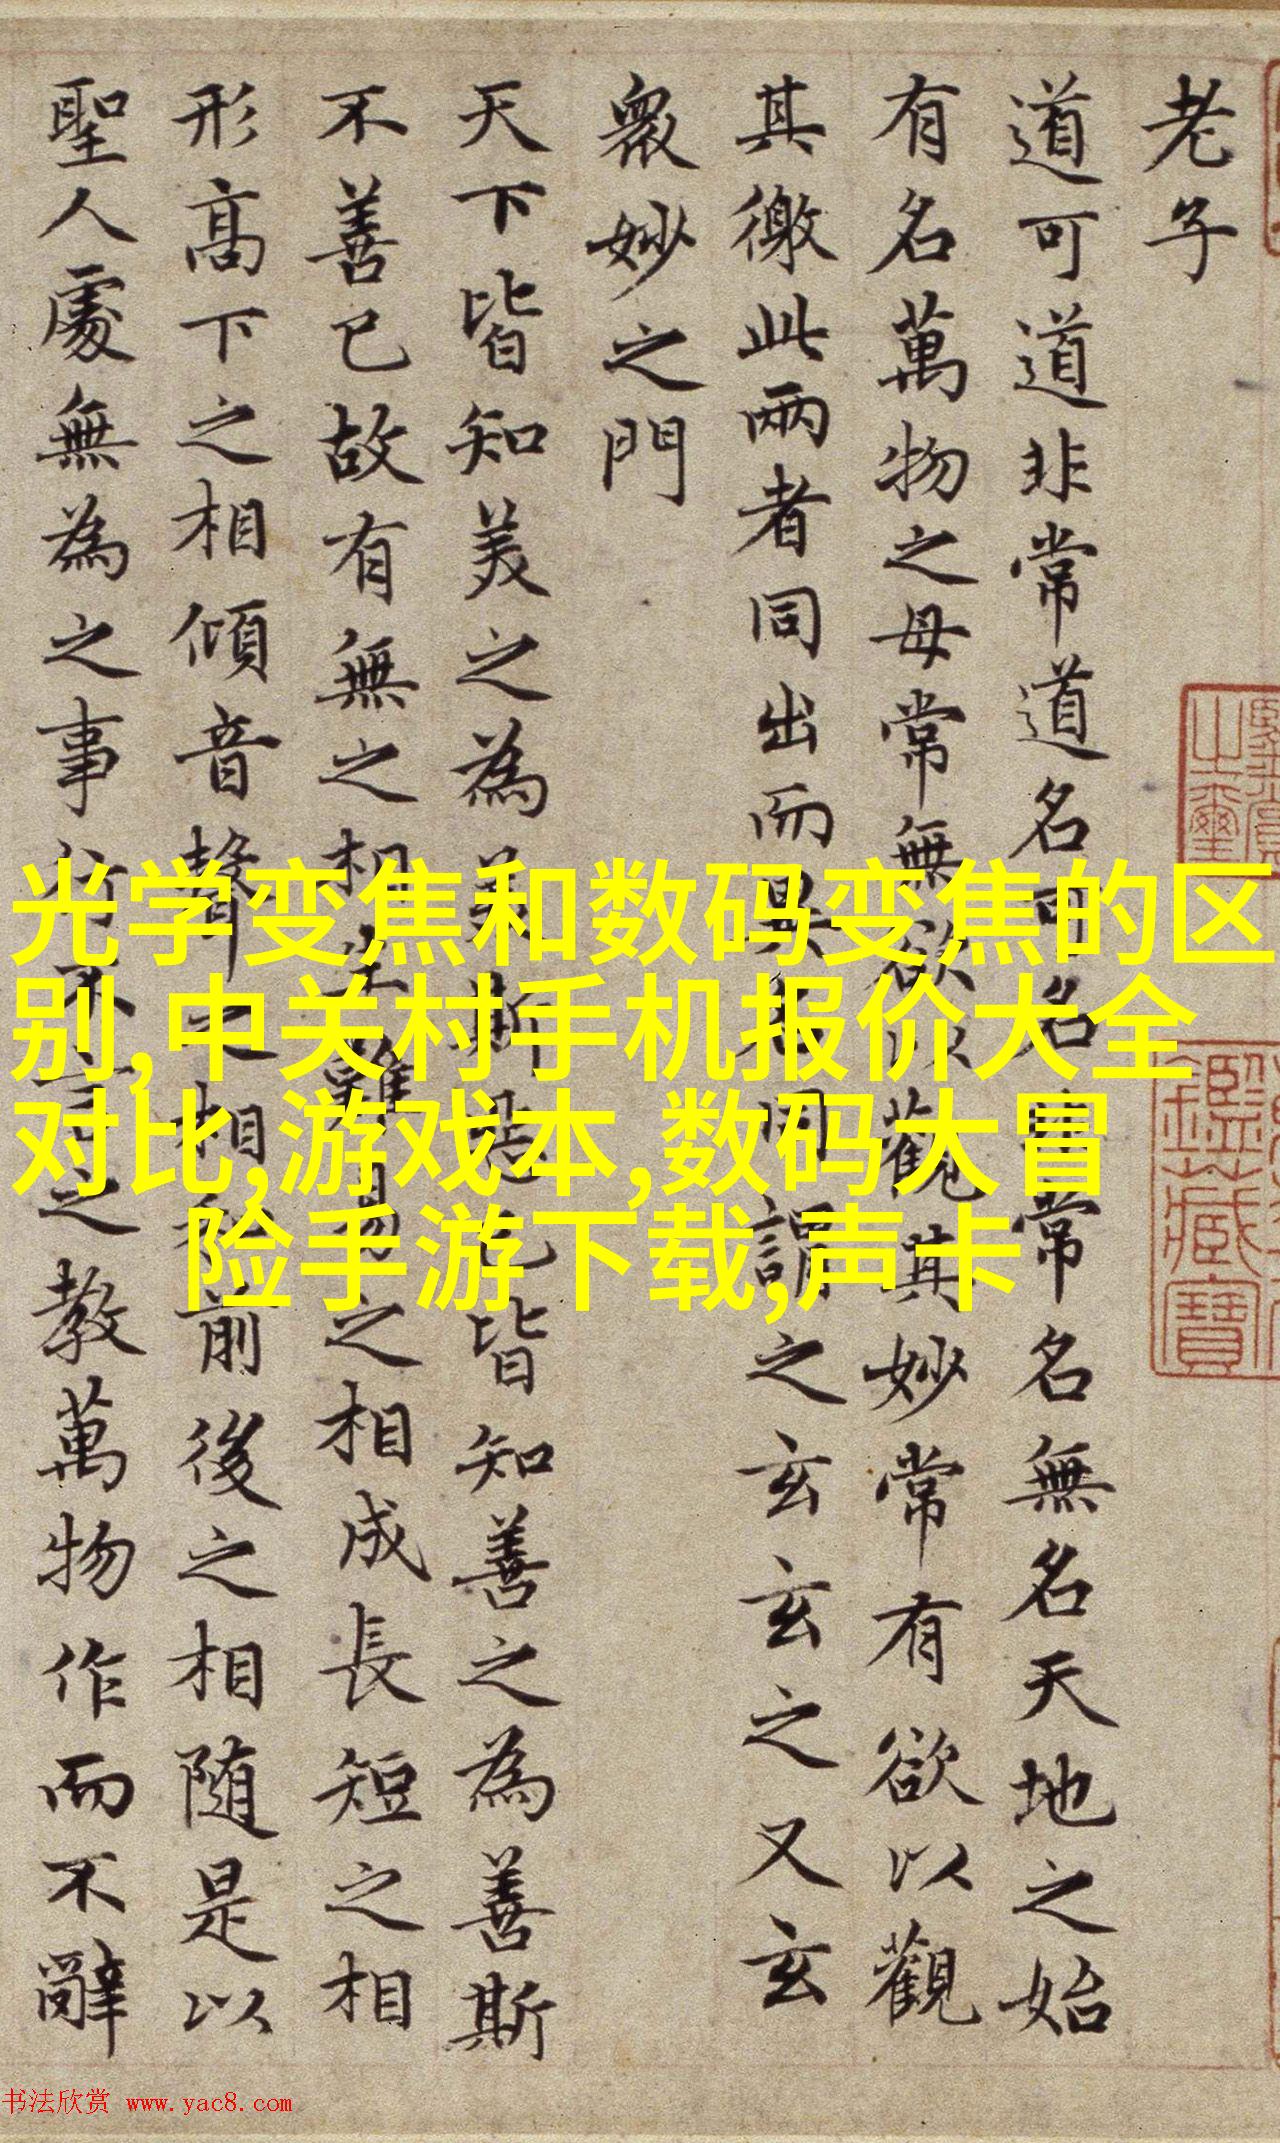 老子
道可道非常道名可名非常名無名天地之始
有名萬物之母常無欲以觀其妙常有欲以觀
其徼此兩者同出而異名同謂之玄玄之又玄
衆妙之門
天下皆知美之為美斯惡已皆知善之為善斯
不善已故有無之相生難易之相成長短之相
形高下之相傾音聲之相和前後之相随是以
聖人處無為之事行不言之教萬物作而不辭
光学变焦和数码变焦的区
别,中关村手机报价大全
对比,游戏本,数码大冒
险手游下载,声卡
书法欣赏 www.yac8.com